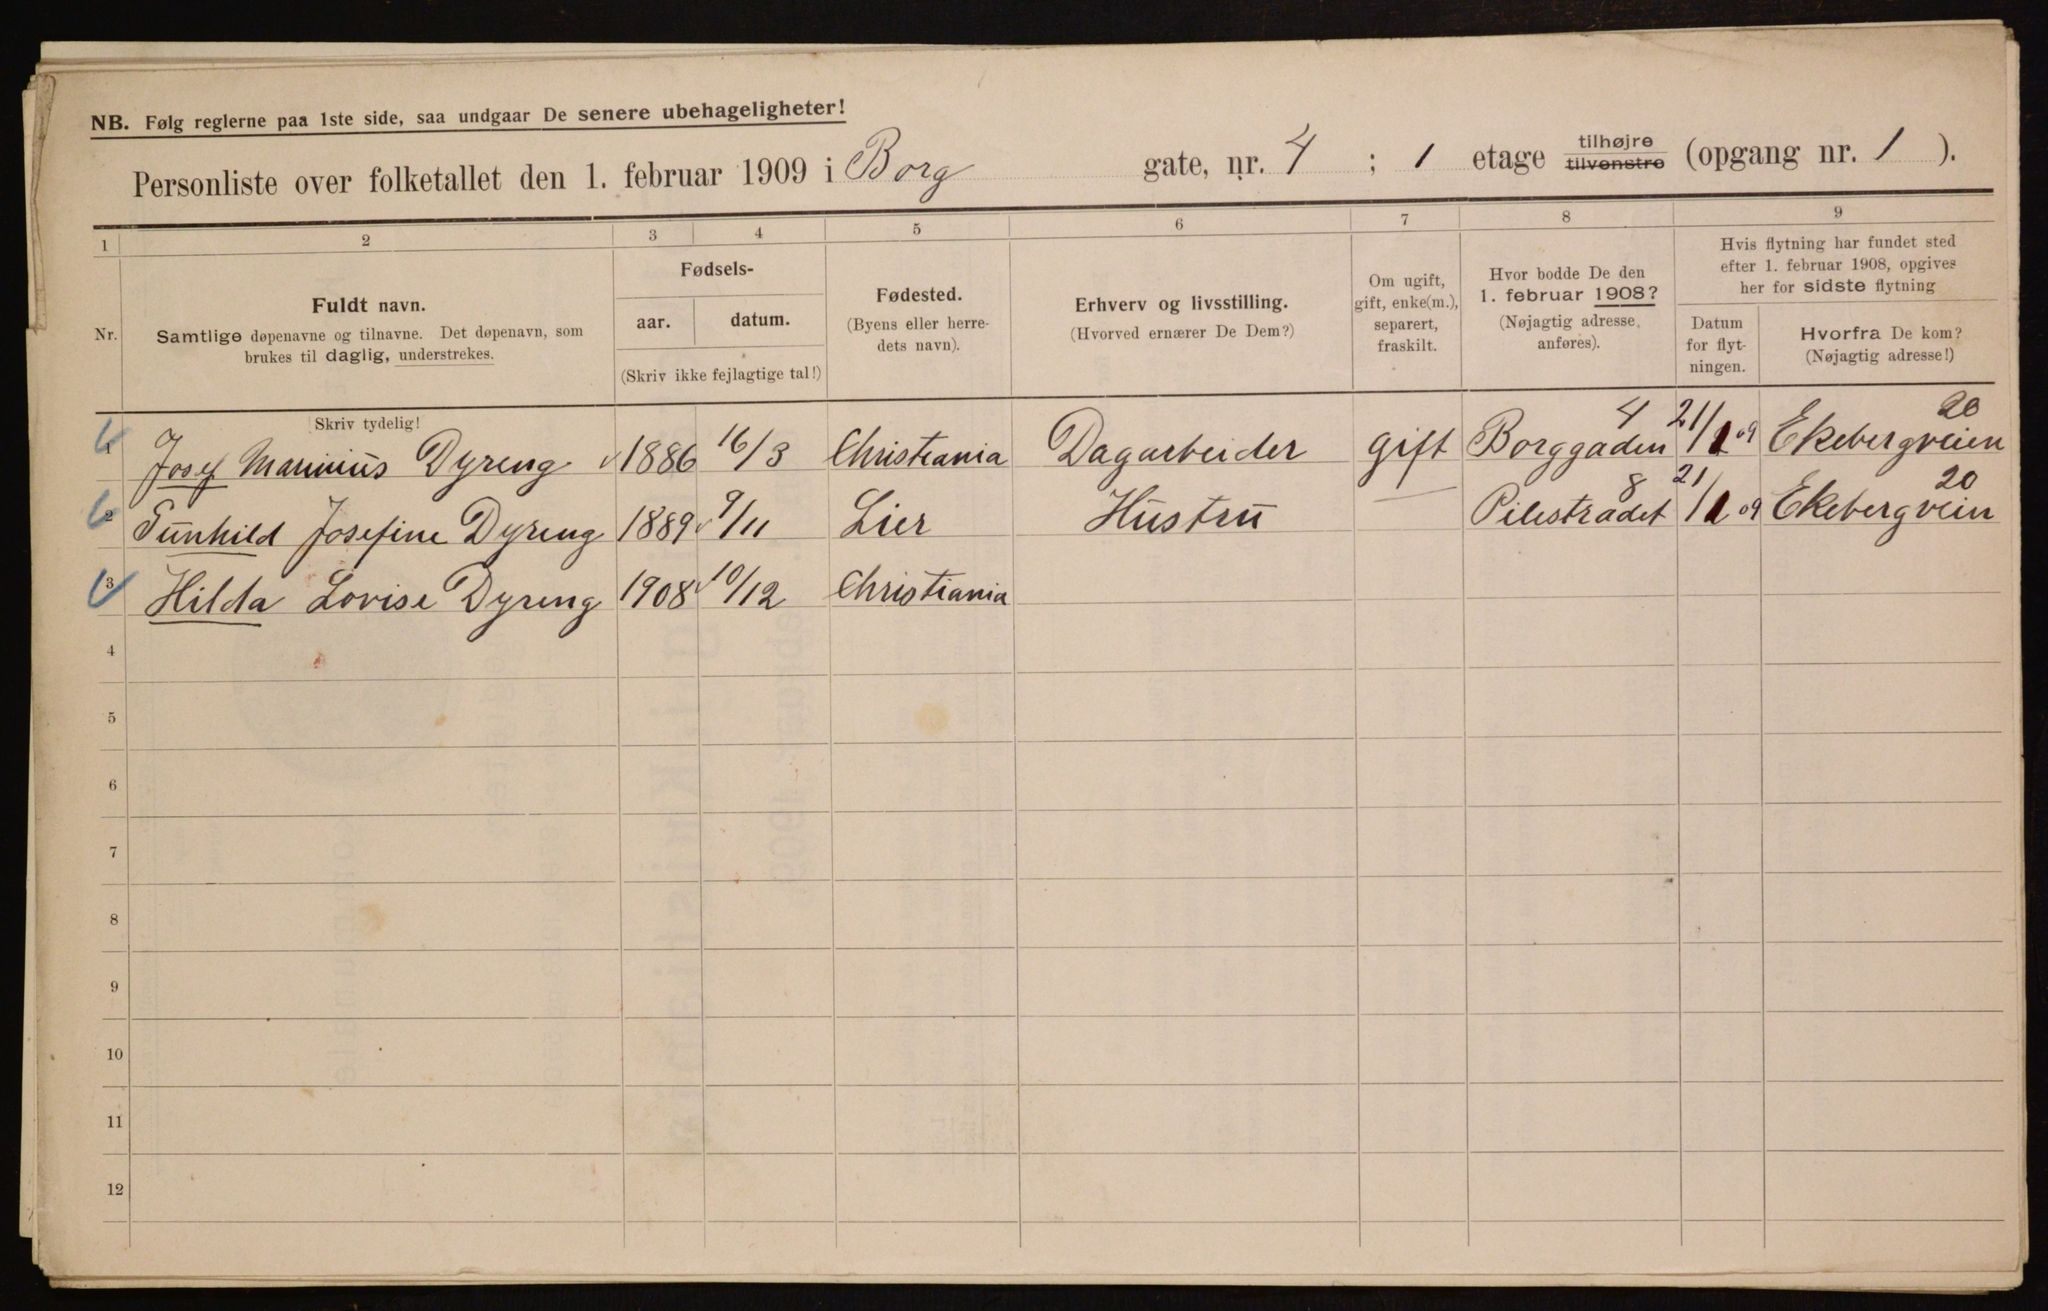 NB. Følg reglerne paa 1ste side, saa undgaar De senere ubehageligheter!
Personliste over folketallet den 1. februar 1909 i Borg gate, nr. 4 ; 1 etage tilhøjre tilvenstre (opgang nr. 1 ).
1 2 3 4 5 6 7 8 9
Nr.
Fuldt navn.
Samtlige døpenavne og tilnavne. Det døpenavn, som
brukes til daglig, understrekes.
Fødsels-
aar. datum.
(Skriv ikke fejlagtige tal!)
Fødested.
(Byens eller herre-
dets navn).
Erhverv og livsstilling.
(Hvorved ernærer De Dem?)
Om ugift,
gift, enke(m.),
separert,
fraskilt.
Hvor bodde De den
1. februar 1908?
(Nøjagtig adresse
anføres).
Hvis flytning har fundet sted
efter 1. februar 1908, opgives
her for sidste flytning
Datum
for flyt-
ningen.
Hvorfra De kom?
(Nøjagtig adresse!)
Skriv tydelig!
1 Josef Marinius Dyreng 1886 16/3 Christiania Dagarbeider gift Borggaden 4 21/1 09 Ekebergveien 20
2 Gunhild Josefine Dyreng 1889 9/11 Lier Hustru — Pilestradet 8 21/1 09 Ekebergvein 20
3 Hilda Lovise Dyreng 1908 10/12 Christiania
4
5
6
7
8
9
10
11
12